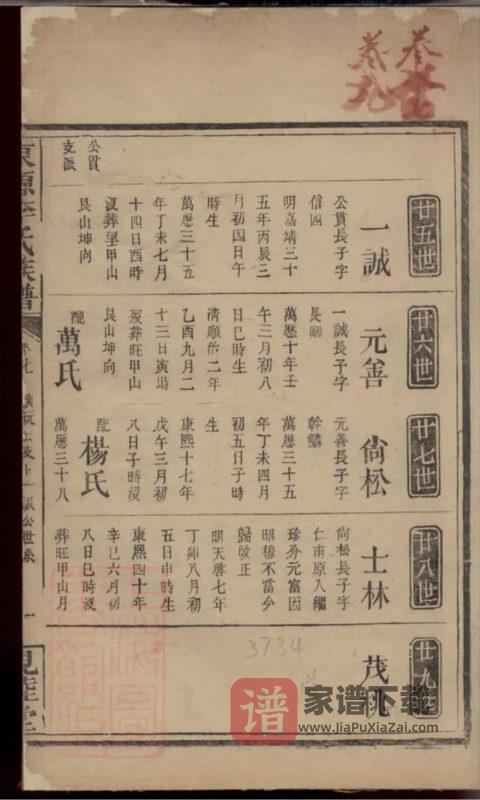 卷九
廿五世
一誠
公貫長子字
信四
明嘉靖三十
五年丙辰三
月初四日午
時生
萬曆三十五
年丁未七月
十四日酉時
沒葬望甲山
艮山坤向
公貫
支派
廿六世
元善
一誠長子字
長卿
萬曆十年壬
午三月初八
日巳時生
清順治二年
乙酉九月二
十三日寅時
歿葬旺甲山
艮山坤向
配
萬氏
廿七世
尙松
元善長子字
幹鱗
萬曆三十五
年丁未四月
初五日子時
生
康熙十七年
戊午三月初
八日子時沒
配
楊氏
萬曆三十八
廿八世
士林
尙松長子字
仁甫原入繼
珍外元富因
昭穆不當今
歸改正
明天啓七年
丁卯八月初
五日申時生
康熙四十年
辛巳六月初
八日巳時沒
葬旺甲山艮
廿九世
茂兆
東源李氏族譜
卷七
3734
谱
家谱下载
www.JiaPuXiaZai.com